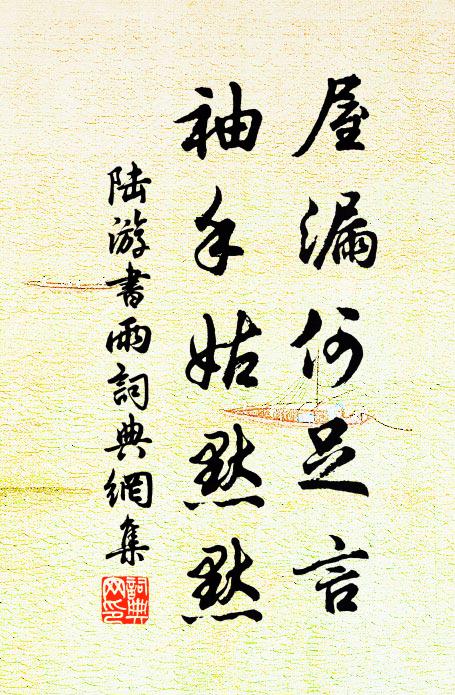 屋漏何足言
袖手姑默默
陆游書雨詞典網集
詞典网印